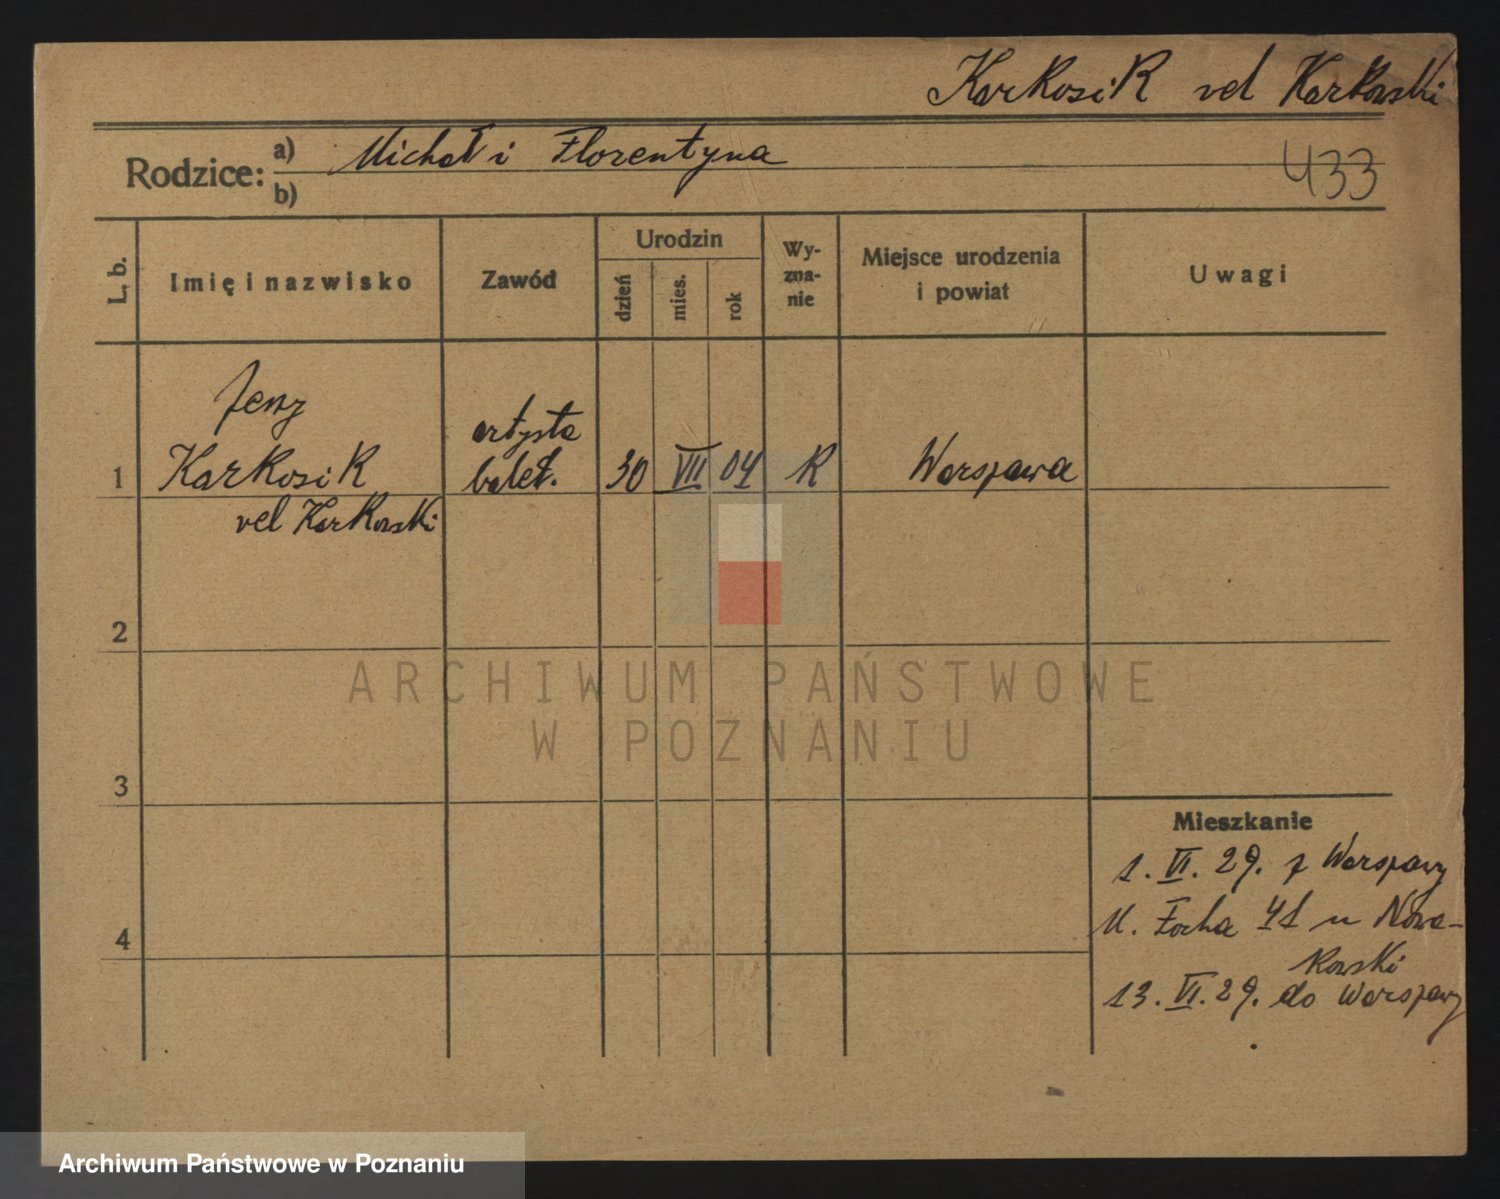 KarKosiK vel KarKowski
Rodzice: a) Michał i Florentyna
b)
433
L. b.
Imię i nazwisko
Zawód
Urodzin
dzień
mies.
rok
Wy-
zna-
nie
Miejsce urodzenia
i powiat
Uwagi
Jerzy
artysta
1 KarKosiK balet. 30 VII 04 R Warszawa
vel KarKowski
2
3
4
Mieszkanie
1. VI. 29. z Warszawy
Focha 41 u Nowa-
Kowski
13. VI. 29. do Warszawy
ARCHIWUM PAŃSTWOWE
W POZNANIU
Archiwum Państwowe w Poznaniu